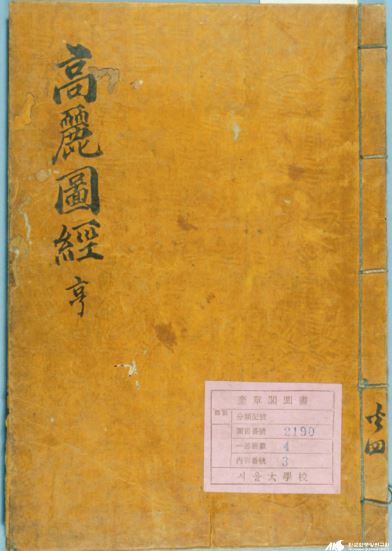 高麗圖經 亨
共四
奎章閣圖書
分類記號
圖書番號 2190
一部冊數 4
內容番號 3
서울大學校